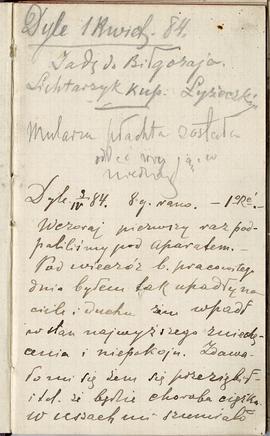 Dyle 1 Kwiec. 84.
Jadę do Biłgoraja.
Lichtarzyk kup.
Mularza płachta została
oddać mu ją w
niedzielę
Dyle 2/IV 84. 8 g. rano. – 1° Ré.
Wczoraj pierwszy raz pod-
paliliśmy pod aparatem. –
Pod wieczór b. pracowitego
dnia byłem tak upadły na
ciele i duchu żem wpadł
w stan najwyższego zniechę-
cenia i niepokoju. Zdawa-
ło mi się żem się przeziębił
i t.d. że będzie choroba ciężka.
W uszach mi szumiało